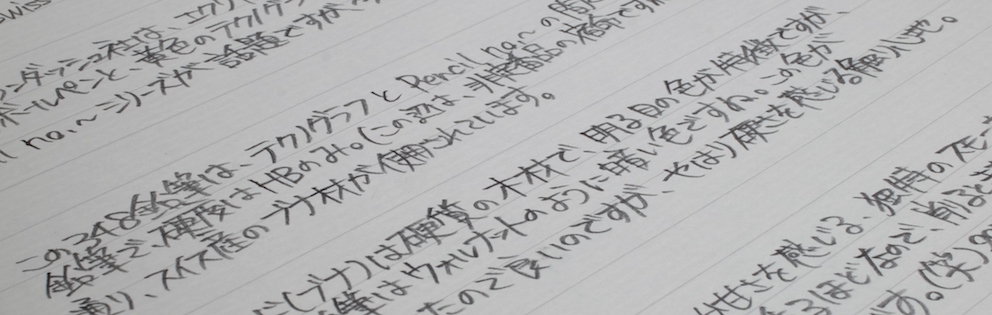 swiss
ンダッシュ社は、エクリ
ボールペンと、黄色のテクノグラ
no.〜シリーズが話題ですが
この248鉛筆は、テクノグラフとPencil no.〜の
鉛筆で、硬度はHBのみ。(この辺は、非売品の
通り、スイス産のブナ材が使われています。
(ブナ)は硬質の木材で、明る目の色が特徴ですが、
筆はウォルナットのように暗い色ですね。この色が
たので良いのですが、やはり硬さを感じる削り心地。
甘さを感じる、独特の
るほどなので、削ると
す。(笑)